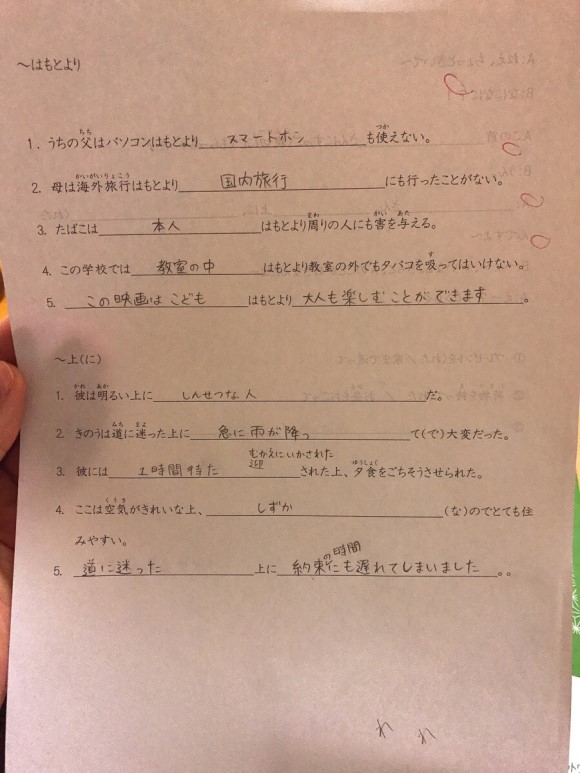 ～はもとより
1．うちの父はパソコンはもとよりスマートホンも使えない。
2．母は海外旅行はもとより国内旅行にも行ったことがない。
3．たばこは本人はもとより周りの人にも害を与える。
4．この学校では教室の中はもとより教室の外でもタバコを吸ってはいけない。
5．この映画はこどもはもとより大人も楽しむことができます。
～上（に）
1．彼は明るい上にしんせつな人だ。
2．きのうは道に迷った上に急に雨が降って（で）大変だった。
むかえにいかされた
3．彼には1時間待た 迎された上、夕食をごちそうさせられた。
4．ここは空気がきれいな上、しずか（な）のでとても住
みやすい。
の時間
5．道に迷った上に約束にも遅れてしまいました。。
れ れ